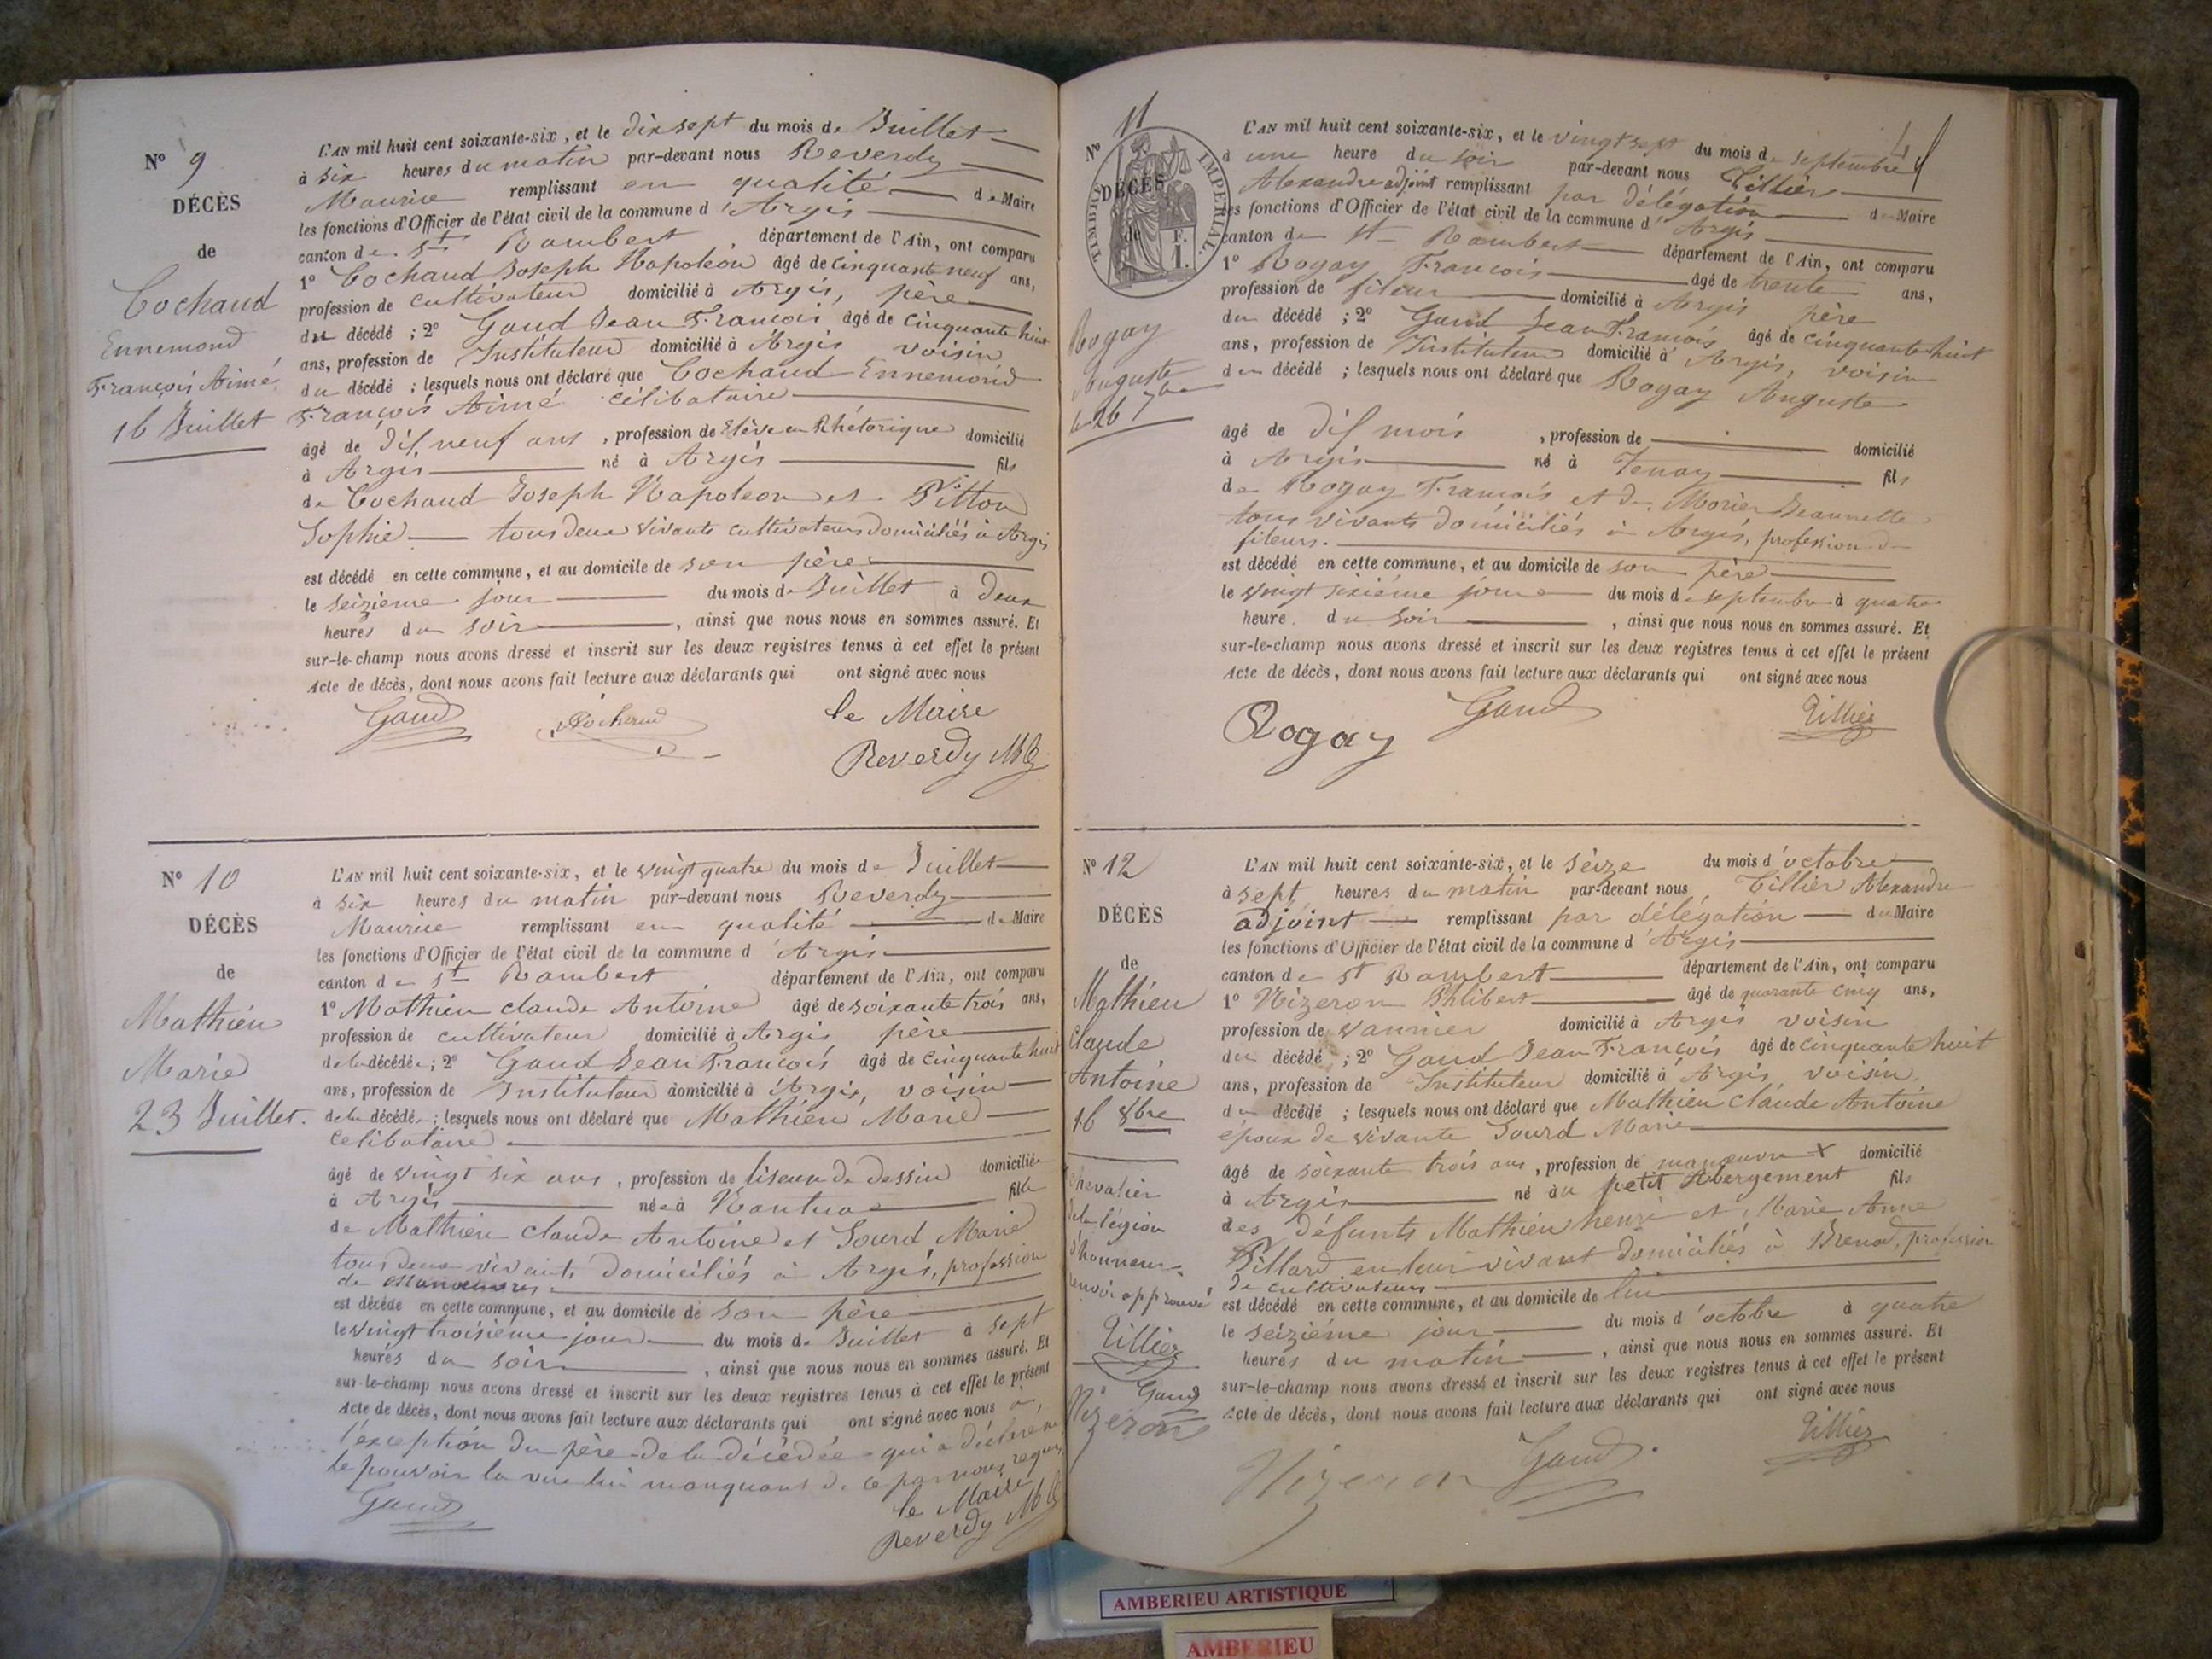 N° 9
DÉCÈS
de
Cochaud
Ennemond
François Aimé
16 Juillet
L'AN mil huit cent soixante-six, et le dix sept du mois de Juillet
à six heures du matin par-devant nous Reverdy
Maurice remplissant en qualité de Maire
les fonctions d'Officier de l'état civil de la commune d'Argis
canton de St Rambert, département de l'Ain, ont comparu
1° Cochaud Joseph Napoléon âgé de cinquante neuf ans,
profession de cultivateur domicilié à Argis, père
du décédé ; 2° Gaud Jean François âgé de cinquante huit
ans, profession de Instituteur domicilié à Argis voisin
du décédé ; lesquels nous ont déclaré que Cochaud Ennemond
François Aimé célibataire
âgé de dix neuf ans, profession de Elève en Rhétorique domicilié
à Argis né à Argis fils
de Cochaud Joseph Napoléon et Pitton
Sophie tous deux vivants cultivateurs domiciliés à Argis
est décédé en cette commune, et au domicile de son père
le seizieme jour du mois de Juillet à deux
heures du soir, ainsi que nous nous en sommes assuré. Et
sur-le-champ nous avons dressé et inscrit sur les deux registres tenus à cet effet le présent
Acte de décès, dont nous avons fait lecture aux déclarants qui ont signé avec nous
Gaud Cochaud le Maire
Reverdy
N° 10
DÉCÈS
de
Mathieu
Marie
23 Juillet.
L'AN mil huit cent soixante-six, et le vingt quatre du mois de Juillet
à six heures du matin par-devant nous Reverdy
Maurice remplissant en qualité de Maire
les fonctions d'Officier de l'état civil de la commune d'Argis
canton de St Rambert département de l'Ain, ont comparu
1° Mathieu claude Antoine âgé de soixante trois ans,
profession de cultivateur domicilié à Argis, père
de la décédée ; 2° Gaud Jean François âgé de cinquante huit
ans, profession de Instituteur domicilié à Argis, voisin
de la décédée ; lesquels nous ont déclaré que Mathieu Marie
celibataire
âgé de vingt six ans, profession de liseuse de dessin domiciliée
à Argis née à Nantua fille
de Mathieu claude Antoine et Sourd Marie
tous deux vivants domiciliés à Argis, profession
de manœuvres
est décédé en cette commune, et au domicile de son père
le vingt troisième jour du mois de Juillet à sept
heures du soir, ainsi que nous nous en sommes assuré. Et
sur-le-champ nous avons dressé et inscrit sur les deux registres tenus à cet effet le présent
Acte de décès, dont nous avons fait lecture aux déclarants qui ont signé avec nous à
l'exception du père de la décédée qui a déclaré ne
le pouvoir la vue lui manquant de ce par nous requis
Gaud le Maire
Reverdy
N° 11
TIMBRE IMPÉRIAL
F.
1.
DÉCÈS
de
Rogay
Auguste
le 26 7bre
L'AN mil huit cent soixante-six, et le vingt sept du mois de septembre
à une heure du soir par-devant nous Tillier
Alexandre adjoint remplissant par délégation du Maire
les fonctions d'Officier de l'état civil de la commune d'Argis
canton de St Rambert département de l'Ain, ont comparu
1° Rogay François âgé de trente ans,
profession de fileur domicilié à Argis père
du décédé ; 2° Gaud Jean François âgé de cinquante huit
ans, profession de Instituteur domicilié à Argis, voisin
du décédé ; lesquels nous ont déclaré que Rogay Auguste
âgé de dix mois, profession de domicilié
à Argis né à Tenay fils
de Rogay François et de Morier Jeannette
tous vivants domiciliés à Argis, profession de
fileurs.
est décédé en cette commune, et au domicile de son père
le vingt sixième jour du mois de septembre à quatre
heure. du soir, ainsi que nous nous en sommes assuré. Et
sur-le-champ nous avons dressé et inscrit sur les deux registres tenus à cet effet le présent
Acte de décès, dont nous avons fait lecture aux déclarants qui ont signé avec nous
Rogay Gaud Tillier
N° 12
DÉCÈS
de
Mathieu
Claude
Antoine
16 8bre
chevalier
de la légion
d'honneur
renvoi approuvé
Tillier
Gaud
Nizeron
L'AN mil huit cent soixante-six, et le seize du mois d'octobre
à sept heures du matin par-devant nous Tillier Alexandre
adjoint remplissant par délégation du Maire
les fonctions d'Officier de l'état civil de la commune d'Argis
canton de St Rambert département de l'Ain, ont comparu
1° Nizeron Philibert âgé de quarante cinq ans,
profession de vannier domicilié à Argis voisin
du décédé ; 2° Gaud Jean François âgé de cinquante huit
ans, profession de Instituteur domicilié à Argis voisin
du décédé ; lesquels nous ont déclaré que Mathieu Claude Antoine
époux de vivante Sourd Marie
âgé de soixante trois ans, profession de manœuvre X domicilié
à Argis né au petit Abergement fils
des défunts Mathieu henri et Marie Anne
Pillard en leur vivant domiciliés à Brenod, profession
de cultivateurs
est décédé en cette commune, et au domicile de lui
le seizième jour du mois d'octobre à quatre
heures du matin, ainsi que nous nous en sommes assuré. Et
sur-le-champ nous avons dressé et inscrit sur les deux registres tenus à cet effet le présent
Acte de décès, dont nous avons fait lecture aux déclarants qui ont signé avec nous
Nizeron Gaud Tillier
AMBERIEU ARTISTIQUE
AMBERIEU